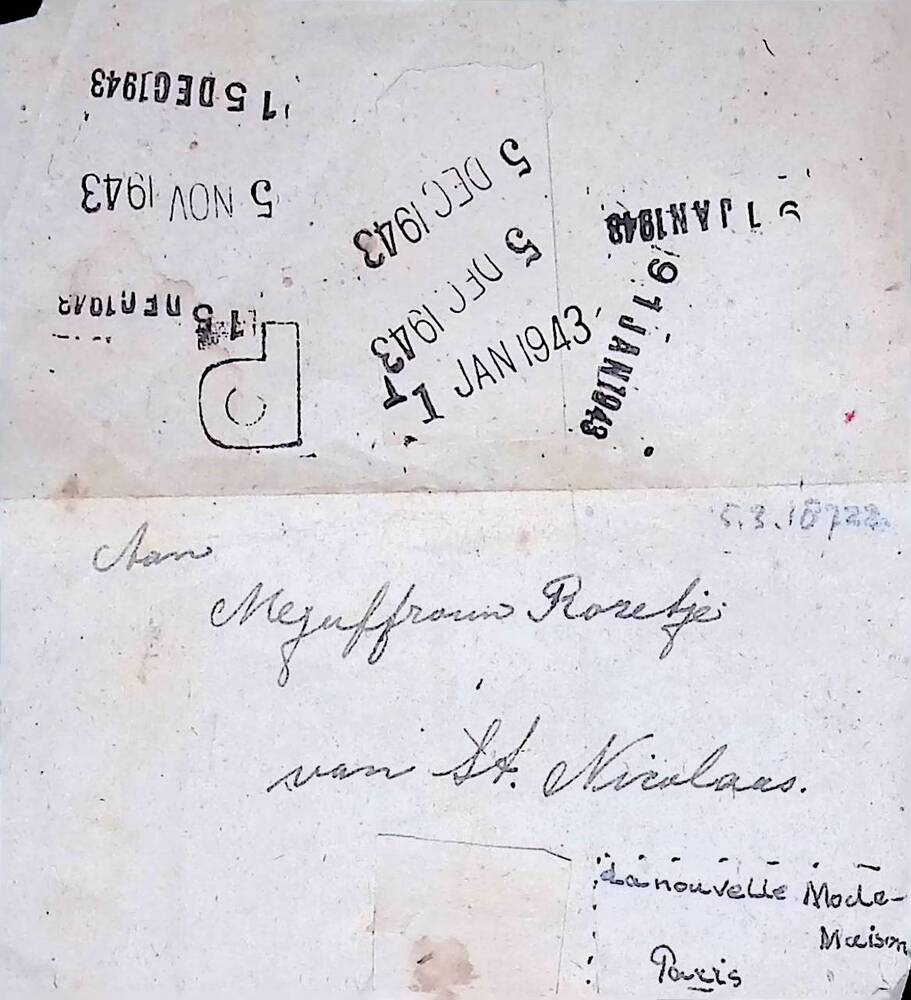 15 DEC 1943
5 NOV 1943
15 DEC 1943
5 DEC 1943
5 DEC 1943
1 JAN 1943
1 JAN 1943
91 JAN 1943
Aan
Mejuffrouw Rosetje
van St. Nicolaas.
La nouvelle Mode-
Maison
Paris